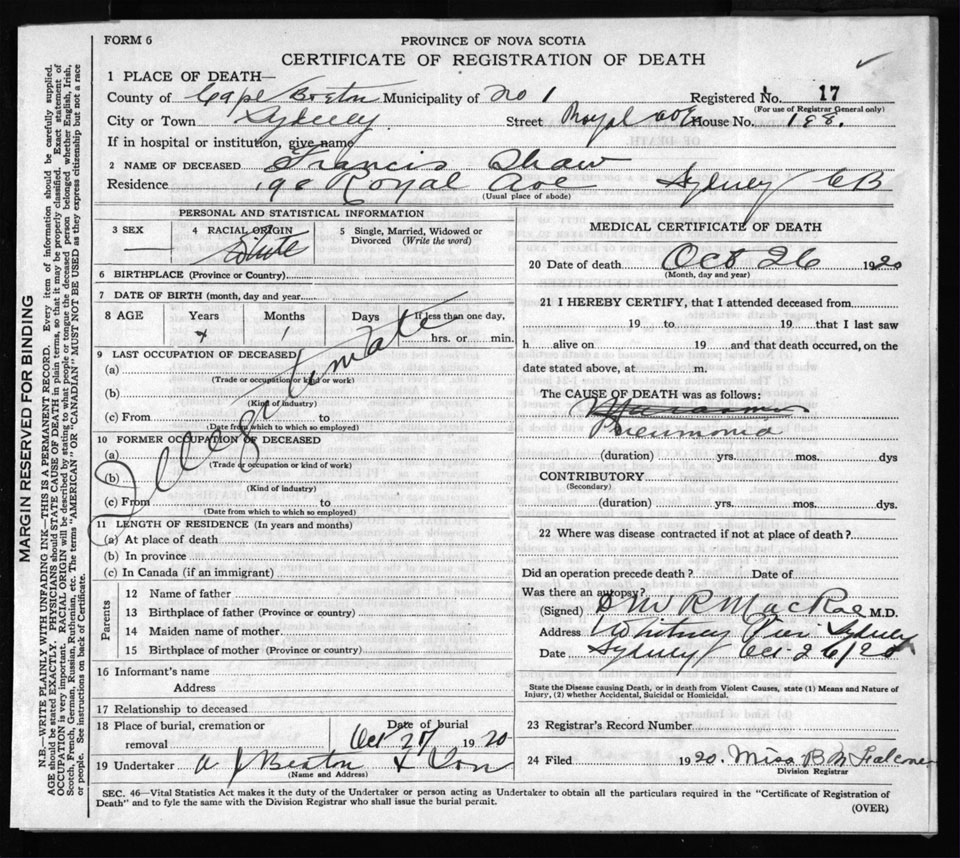 FORM 6
PROVINCE OF NOVA SCOTIA
CERTIFICATE OF REGISTRATION OF DEATH
1 PLACE OF DEATH—
County of Cape Breton Municipality of No 1 Registered No. 17
(For use of Registrar General only)
City or Town Sydney Street Royal ave House No. 198.
If in hospital or institution, give name
2 NAME OF DECEASED Francis Shaw
Residence 198 Royal Ave Sydney CB
(Usual place of abode)
PERSONAL AND STATISTICAL INFORMATION
3 SEX 4 RACIAL ORIGIN 5 Single, Married, Widowed or
Divorced (Write the word)
White
6 BIRTHPLACE (Province or Country)
7 DATE OF BIRTH (month, day and year
8 AGE Years Months Days If less than one day,
1 hrs. or min.
Illegitimate
9 LAST OCCUPATION OF DECEASED
(a)
(Trade or occupation or kind or work)
(b)
(Kind of industry)
(c) From to
(Date from which to which so employed)
10 FORMER OCCUPATION OF DECEASED
(a)
(Trade or occupation or kind of work)
(b)
(Kind of industry)
(c) From to
(Date from which to which so employed)
11 LENGTH OF RESIDENCE (In years and months)
(a) At place of death
(b) In province
(c) In Canada (if an immigrant)
Parents
12 Name of father
13 Birthplace of father (Province or country)
14 Maiden name of mother
15 Birthplace of mother (Province or country)
16 Informant's name
Address
17 Relationship to deceased
18 Place of burial, cremation or
removal
Date of burial
Oct 27 1920
19 Undertaker A J Beaton & Son
(Name and Address)
MEDICAL CERTIFICATE OF DEATH
20 Date of death Oct 26 1920
(Month, day and year)
21 I HEREBY CERTIFY, that I attended deceased from
19 to 19 that I last saw
h alive on 19 and that death occurred, on the
date stated above, at m.
The CAUSE OF DEATH was as follows:
Marasmus
Pneumonia
(duration) yrs. mos. dys
CONTRIBUTORY
(Secondary)
(duration) yrs. mos. dys.
22 Where was disease contracted if not at place of death?
Did an operation precede death? Date of
Was there an autopsy?
(Signed) R MacRae M.D.
Address Whitney Pier Sydney
Date Sydney Oct 26/20
State the Disease causing Death, or in death from Violent Causes, state (1) Means and Nature of
Injury, (2) whether Accidental, Suicidal or Homicidal.
23 Registrar's Record Number
24 Filed 1920. Miss B M Falconer
Division Registrar
SEC. 46—Vital Statistics Act makes it the duty of the Undertaker or person acting as Undertaker to obtain all the particulars required in the "Certificate of Registration of
Death" and to fyle the same with the Division Registrar who shall issue the burial permit.
(OVER)
MARGIN RESERVED FOR BINDING
N.B.—WRITE PLAINLY WITH UNFADING INK—THIS IS A PERMANENT RECORD. Every item of information should be carefully supplied.
AGE should be stated EXACTLY. PHYSICIANS should STATE CAUSE OF DEATH in plain terms, so that it may be properly classified. Exact statement of
OCCUPATION is very important. RACIAL ORIGIN will be described by stating to what people or tongue the deceased person belonged whether English, Irish,
Scotch, French, German, Russian, Ruthenian, etc. The terms "AMERICAN" OR "CANADIAN" MUST NOT BE USED as they express citizenship but not a race
or people. See instructions on back of Certificate.